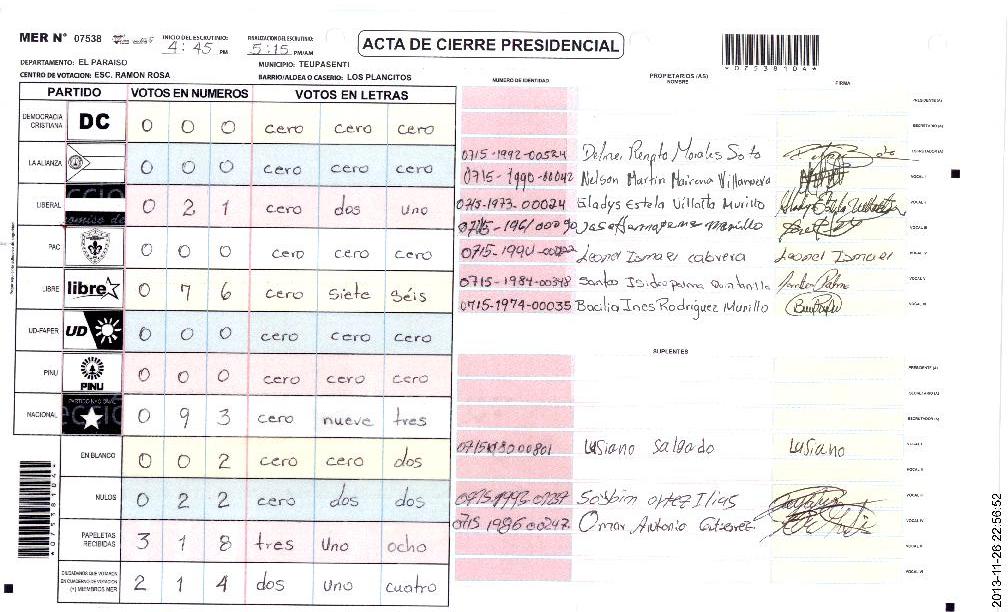 MER N° 07538
INICIO DEL ESCRUTINIO: 4:45 PM
FINALIZACION DEL ESCRUTINIO: 5:15 PM/AM
ACTA DE CIERRE PRESIDENCIAL
*07538104*
DEPARTAMENTO: EL PARAISO
MUNICIPIO: TEUPASENTI
CENTRO DE VOTACION: ESC. RAMON ROSA
BARRIO/ALDEA O CASERIO: LOS PLANCITOS
PARTIDO VOTOS EN NUMEROS VOTOS EN LETRAS
DEMOCRACIA CRISTIANA DC 0 0 0 cero cero cero
LA ALIANZA 0 0 0 cero cero cero
LIBERAL 0 2 1 cero dos uno
PAC 0 0 0 cero cero cero
LIBRE libre 0 7 6 cero siete séis
UD-FAPER UD 0 0 0 cero cero cero
PINU PINU 0 0 0 cero cero cero
NACIONAL 0 9 3 cero nueve tres
EN BLANCO 0 0 2 cero cero dos
NULOS 0 2 2 cero dos dos
PAPELETAS RECIBIDAS 3 1 8 tres uno ocho
CIUDADANOS QUE VOTARON EN CUADERNO DE VOTACION (*) MIEMBROS MER 2 1 4 dos uno cuatro
PROPIETARIOS (AS)
NUMERO DE IDENTIDAD NOMBRE FIRMA
PRESIDENTE (A)
SECRETARIO (A)
0715-1992-00524 Delmer Renato Morales Soto ESCRUTADOR (A)
0715-1990-00042 Nelson Martin Mairena Villanueva VOCAL I
0715-1973-00024 Gladys Estela Villatta Murillo VOCAL II
Murillo VOCAL III
Leonel Ismael cabrera Leonel Ismael VOCAL IV
0715-1984-00348 Santos Isidro palma Quintanilla VOCAL V
0715-1974-00035 Bacilia Ines Rodriguez Murillo VOCAL VI
SUPLENTES
PRESIDENTE (A)
SECRETARIO (A)
ESCRUTADOR (A)
Lusiano Salgado Lusiano VOCAL I
VOCAL II
VOCAL III
0715 1986 00247 Omar Antonio VOCAL IV
VOCAL V
VOCAL VI
*07538104*
2013-11-26 22:56:52